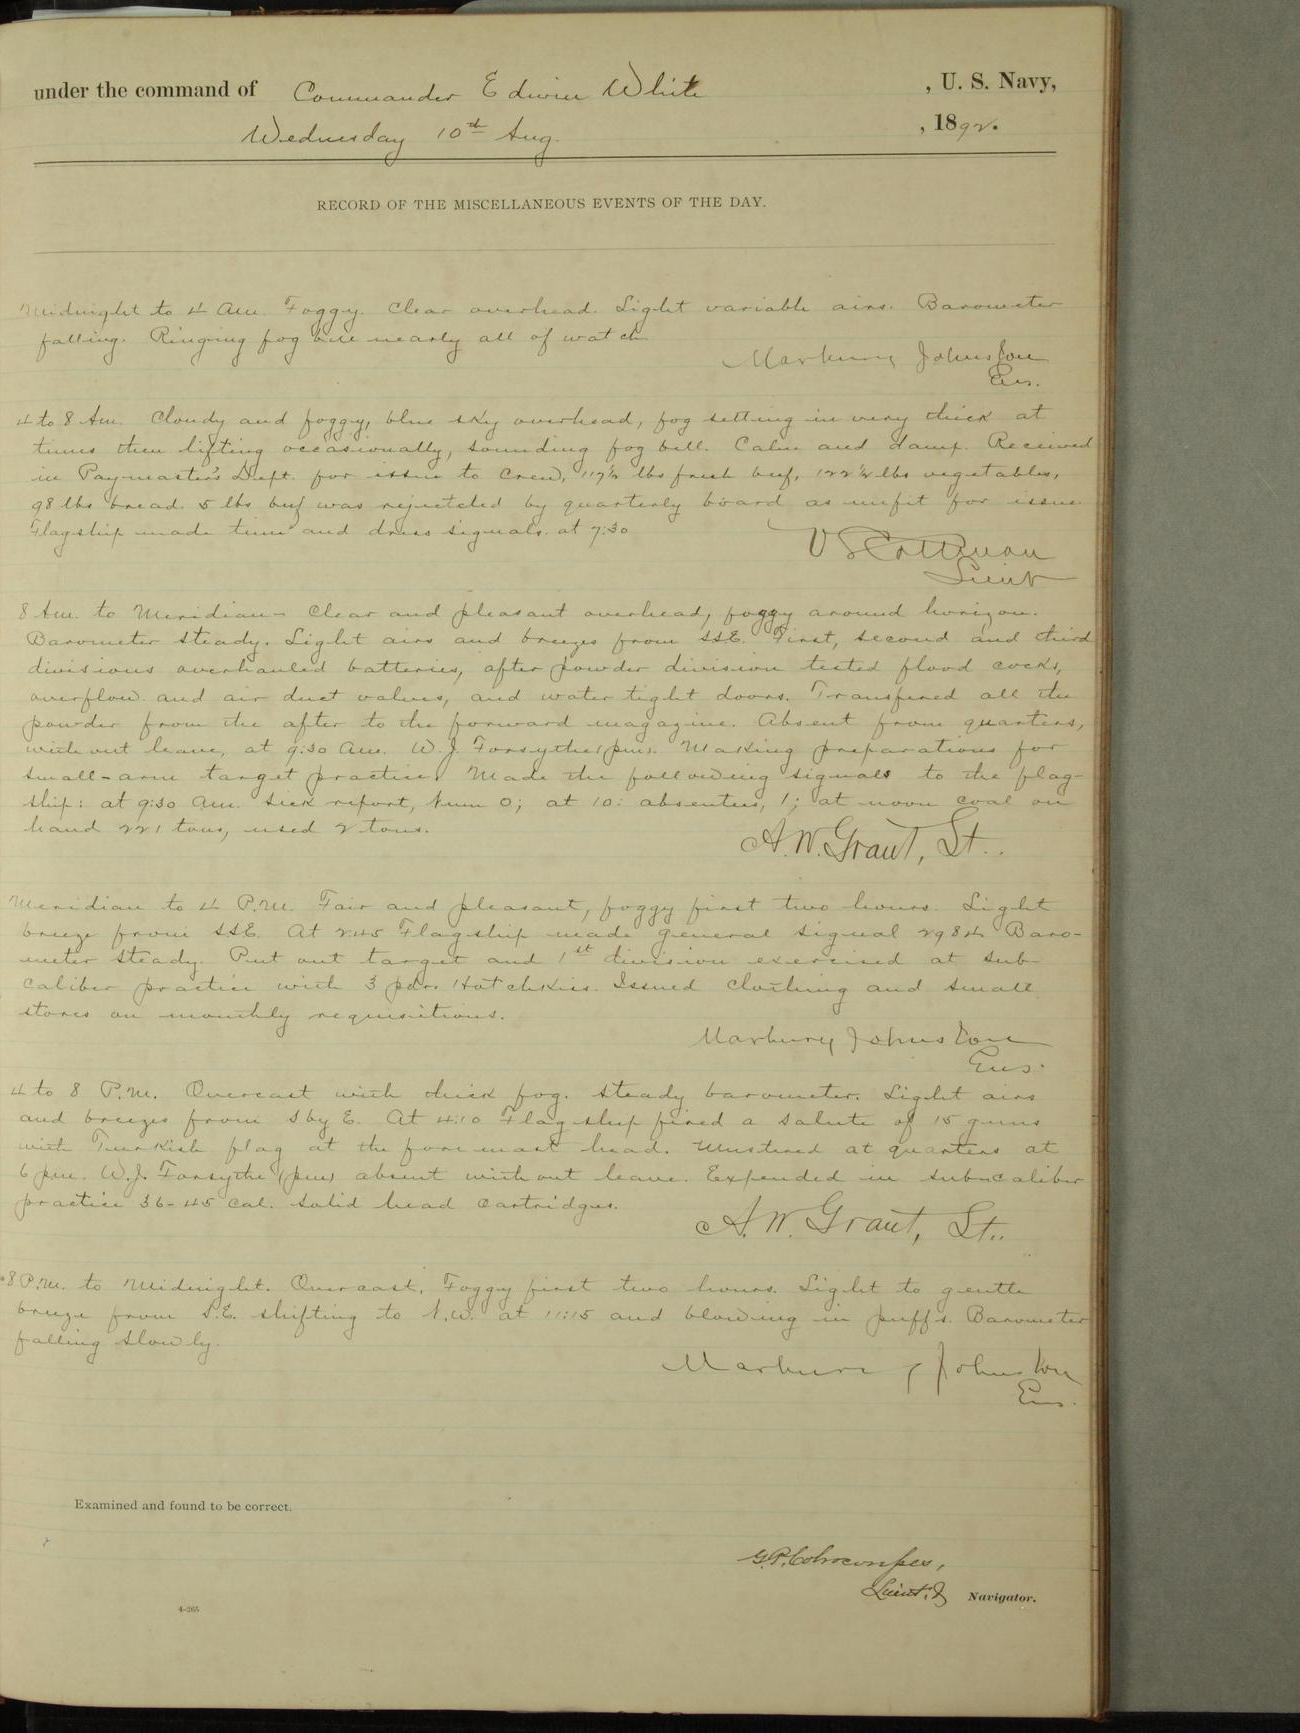 under the command of Commander Edwin White , U. S. Navy,
Wednesday 10th Aug. , 1892.
RECORD OF THE MISCELLANEOUS EVENTS OF THE DAY.
Midnight to 4 Am. Foggy. Clear overhead. Light variable airs. Barometer
falling. Ringing fog bell nearly all of watch
Marbury Johnston
Ens.
4 to 8 Am. Cloudy and foggy, blue sky overhead, fog setting in very thick at
times then lifting occasionally, sounding fog bell. Calm and damp. Received
in Paymaster's Dept. for issue to Crew, 117½ lbs fresh beef, 122½ lbs vegetables,
98 lbs bread. 5 lbs beef was rejectded by quarterly board as unfit for issue.
Flagship made time and dress signals. at 7:30
V S Cottman
Lieut
8 Am. to Meridian - Clear and pleasant overhead, foggy around horizon.
Barometer steady. Light airs and breezes from SSE. First, second and third
divisions overhauled batteries, after powder division tested flood cocks,
overflow and air duct valves, and water tight doors. Transfered all the
powder from the after to the forward magazine. Absent from quarters,
without leave, at 9:30 Am. W. J. Forsythe (pm). Making preparations for
small-arm target practice. Made the following signals to the flag-
ship: at 9:30 Am. sick report, Num 0; at 10: absentees, 1; at noon coal on
hand 221 tons, used 2 tons.
A. W. Grant, Lt..
Meridian to 4 P.M. Fair and pleasant, foggy first two hours. Light
breeze from SSE. At 2:45 Flagship made general signal 2984 Baro-
meter steady. Put out target and 1st division exercised at sub-
caliber practice with 3 pdr. Hotchkiss. Issued clothing and small
stores on monthly requisitions.
Marbury Johnston
Ens.
4 to 8 P.M. Overcast with thick fog. Steady barometer. Light airs
and breezes from S by E. At 4:10 Flagship fired a salute of 15 guns
with Turkish flag at the foremast head. Mustered at quarters at
6 pm. W. J. Forsythe (pm) absent without leave. Expended in sub-caliber
practice 36-45 cal. solid head cartridges.
A. W. Grant, Lt..
8 P.M. to Midnight. Overcast. Foggy first two hours. Light to gentle
breeze from S.E. shifting to N.W. at 11:15 and blowing in puffs. Barometer
falling slowly.
Marbury Johnston
Ens.
Examined and found to be correct.
Lieut. & Navigator.
4-265